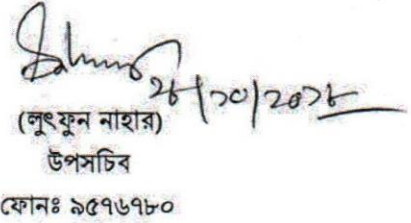 ২৮/১০/২০১৮
(লুৎফুন নাহার)
উপসচিব
ফোনঃ ৯৫৭৬৭৮০